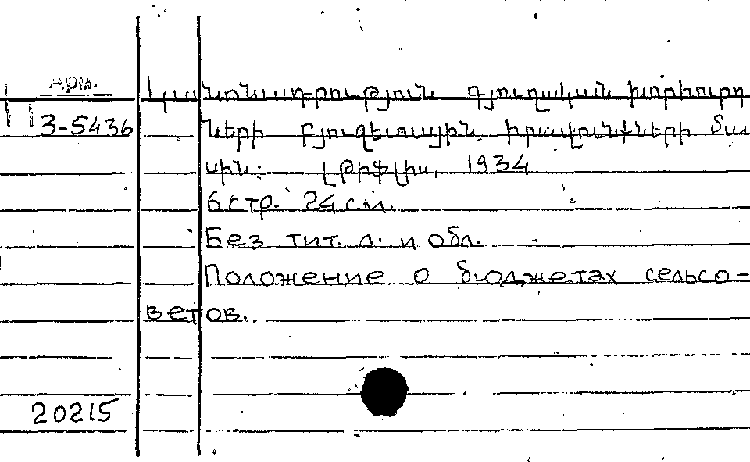 Арм.
Կանոնադրություն գյուղական խորհուրդ
3-5436 ների բյուջետային իրավունքների մա
սին: Թիֆլիս, 1934
6 стр. 24 см.
Без тит. л. и обл.
Положение о бюджетах сельсо=
ветов.
20215